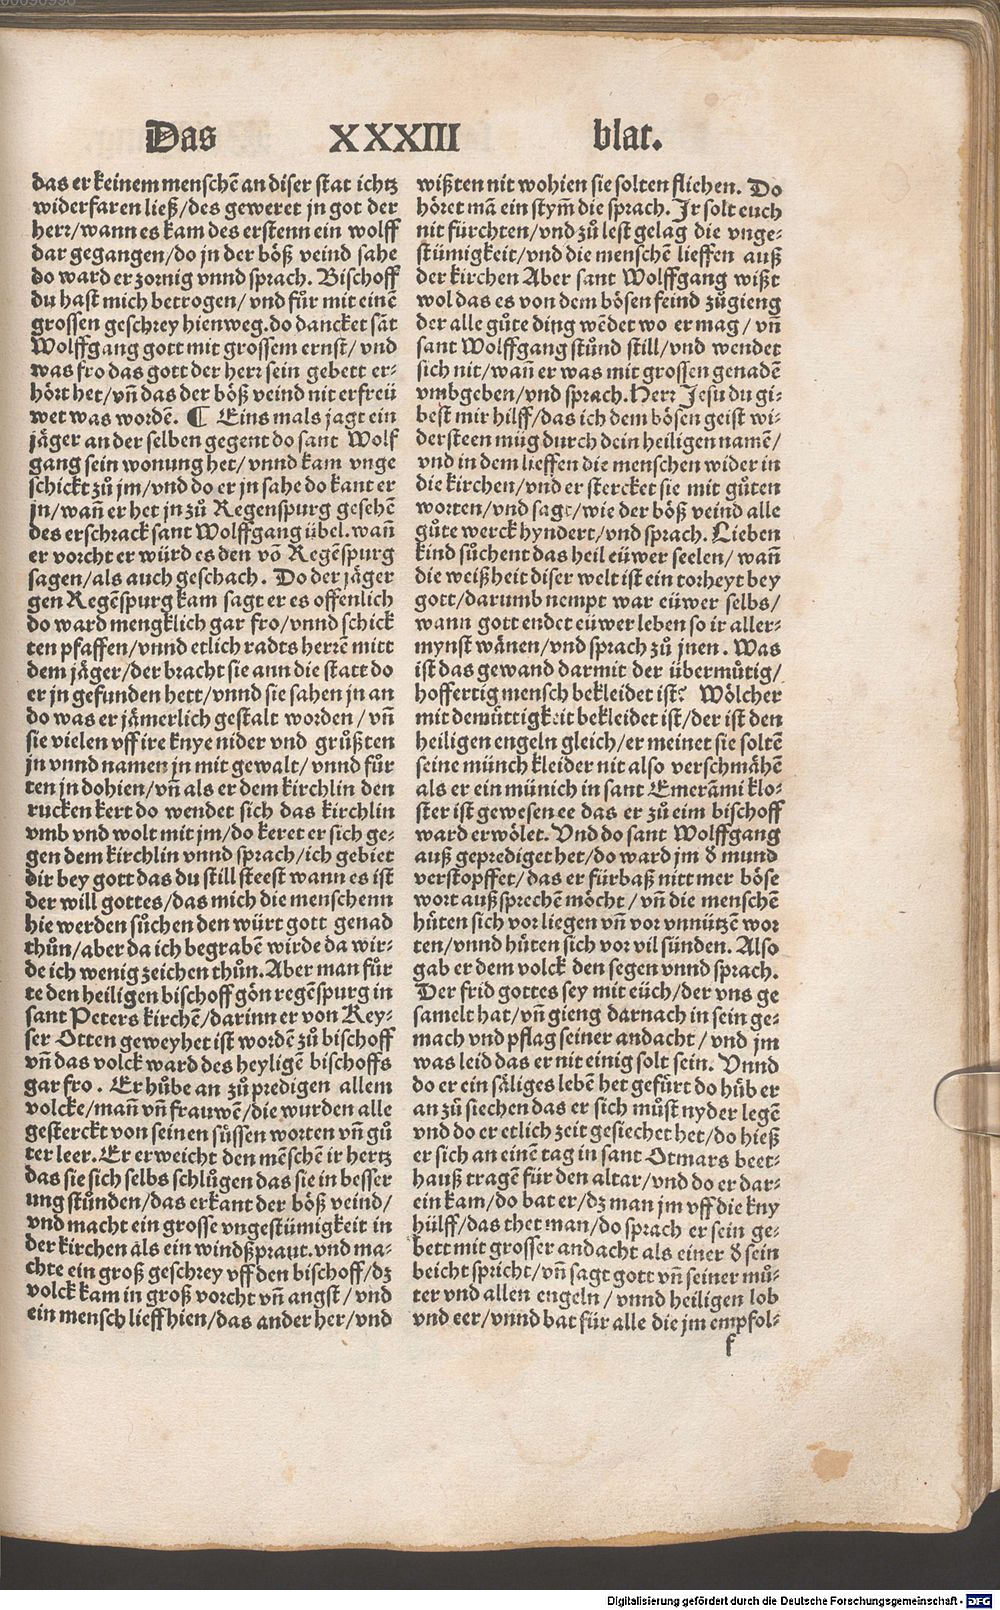 Das XXXIII blat.
das er keinem menschē an diser stat ichtz
widerfaren ließ/des geweret jn got der
herr/wann es kam des erstenn ein wolff
dar gegangen/do jn der böß veind sahe
do ward er zornig vnnd sprach. Bischoff
du hast mich betrogen/vnd fůr mit einē
grossen geschrey hienweg.do dancket sāt
Wolffgang gott mit grossem ernst/vnd
was fro das gott der herr sein gebett er-
hört het/vn̄ das der böß veind nit erfreü
wet was wordē. ¶ Eins mals jagt ein
jäger an der selben gegent do sant Wolf
gang sein wonung het/vnnd kam vnge
schickt zů jm/vnd do er jn sahe do kant er
jn/wan̄ er het jn zů Regenspurg gesehē
des erschrack sant Wolffgang übel.wan̄
er vorcht er würd es den vō Regēspurg
sagen/als auch geschach. Do der jäger
gen Regēspurg kam sagt er es offenlich
do ward mengklich gar fro/vnnd schick
ten pfaffen/vnnd etlich radts herrē mitt
dem jäger/der bracht sie ann die statt do
er jn gefunden hett/vnnd sie sahen jn an
do was er jämerlich gestalt worden/vn̄
sie vielen vff ire knye nider vnd grůßten
jn vnnd namen jn mit gewalt/vnnd fůr
ten jn dohien/vn̄ als er dem kirchlin den
rucken kert do wendet sich das kirchlin
vmb vnd wolt mit jm/do keret er sich ge-
gen dem kirchlin vnnd sprach/ich gebiet
dir bey gott das du still steest wann es ist
der will gottes/das mich die menschenn
hie werden sůchen den würt gott genad
thůn/aber da ich begrabē wirde da wir-
de ich wenig zeichen thůn.Aber man fůr
te den heiligen bischoff gön regēspurg in
sant Peters kirchē/darinn er von Key-
ser Otten geweyhet ist wordē zů bischoff
vn̄ das volck ward des heyligē bischoffs
gar fro. Er hůbe an zů predigen allem
volcke/man̄ vn̄ frauwē/die wurden alle
gesterckt von seinen süssen worten vn̄ gů
ter leer.Er erweicht den mēschē ir hertz
das sie sich selbs schlůgen das sie in besser
ung stůnden/das erkant der böß veind/
vnd macht ein grosse vngestümigkeit in
der kirchen als ein windßpraut.vnd ma-
chte ein groß geschrey vff den bischoff/dz
volck kam in groß vorcht vn̄ angst/vnd
ein mensch lieff hien/das ander her/vnd
wißten nit wohien sie solten fliehen. Do
höret mā ein stym̄ die sprach. Jr solt euch
nit fürchten/vnd zů lest gelag die vnge-
stümigkeit/vnd die menschē lieffen auß
der kirchen Aber sant Wolffgang wißt
wol das es von dem bösen feind zůgieng
der alle gůte ding wēdet wo er mag/vn̄
sant Wolffgang stůnd still/vnd wendet
sich nit/wan̄ er was mit grossen genadē
vmbgeben/vnd sprach.Herr Jesu du gi-
best mir hilff/das ich dem bösen geist wi-
dersteen müg durch dein heiligen namē/
vnd in dem lieffen die menschen wider in
die kirchen/vnd er stercket sie mit gůten
worten/vnd sagt/wie der böß veind alle
gůte werck hyndert/vnd sprach. Lieben
kind sůchent das heil eüwer seelen/wan̄
die weißheit diser welt ist ein torheyt bey
gott/darumb nempt war eüwer selbs/
wann gott endet eüwer leben so ir aller-
mynst wänen/vnd sprach zů jnen. Was
ist das gewand darmit der übermůtig/
hoffertig mensch bekleidet ist? Wölcher
mit demüttigkeit bekleidet ist/der ist den
heiligen engeln gleich/er meinet sie soltē
seine münch kleider nit also verschmähē
als er ein münich in sant Emerāmi klo-
ster ist gewesen ee das er zů eim bischoff
ward erwölet. Vnd do sant Wolffgang
auß geprediget het/do ward jm d̄ mund
verstopffet/das er fürbaß nitt mer böse
wort außsprechē möcht/vn̄ die menschē
hůten sich vor liegen vn̄ vor vnnützen wor
ten/vnnd hůten sich vor vil sünden. Also
gab er dem volck den segen vnnd sprach.
Der frid gottes sey mit eüch/der vns ge
samelt hat/vn̄ gieng darnach in sein ge-
mach vnd pflag seiner andacht/vnd jm
was leid das er nit einig solt sein. Vnnd
do er ein säliges lebē het gefürt do hůb er
an zů siechen das er sich můst nyder legē
vnd do er etlich zeit gesiechet het/do hieß
er sich an einē tag in sant Otmars beet-
hauß tragē für den altar/vnd do er dar-
ein kam/do bat er/dz man jm vff die kny
hülff/das thet man/do sprach er sein ge-
bett mit grosser andacht als einer d̄ sein
beicht spricht/vn̄ sagt gott vn̄ seiner mů-
ter vnd allen engeln/vnnd heiligen lob
vnd eer/vnnd bat für alle die jm empfol-
f
Digitalisierung gefördert durch die Deutsche Forschungsgemeinschaft - DFG